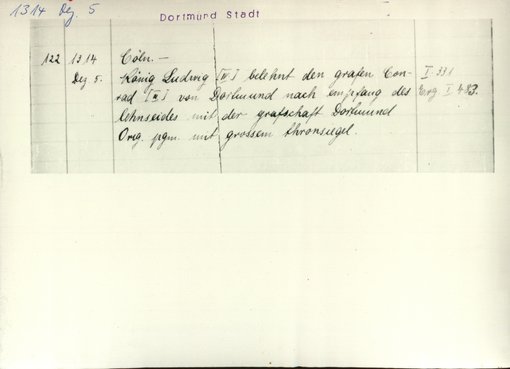 1314 Dez. 5
Dortmund Stadt
122 1314 Cöln. —
Dez 5. König Ludwig IV I belehnt den grafen Con- I. 331
rad von Dortmund nach empfang des I 483.
lehnseides mit der grafschaft Dortmund
Orig. pgm. mit grossem thronsiegel.